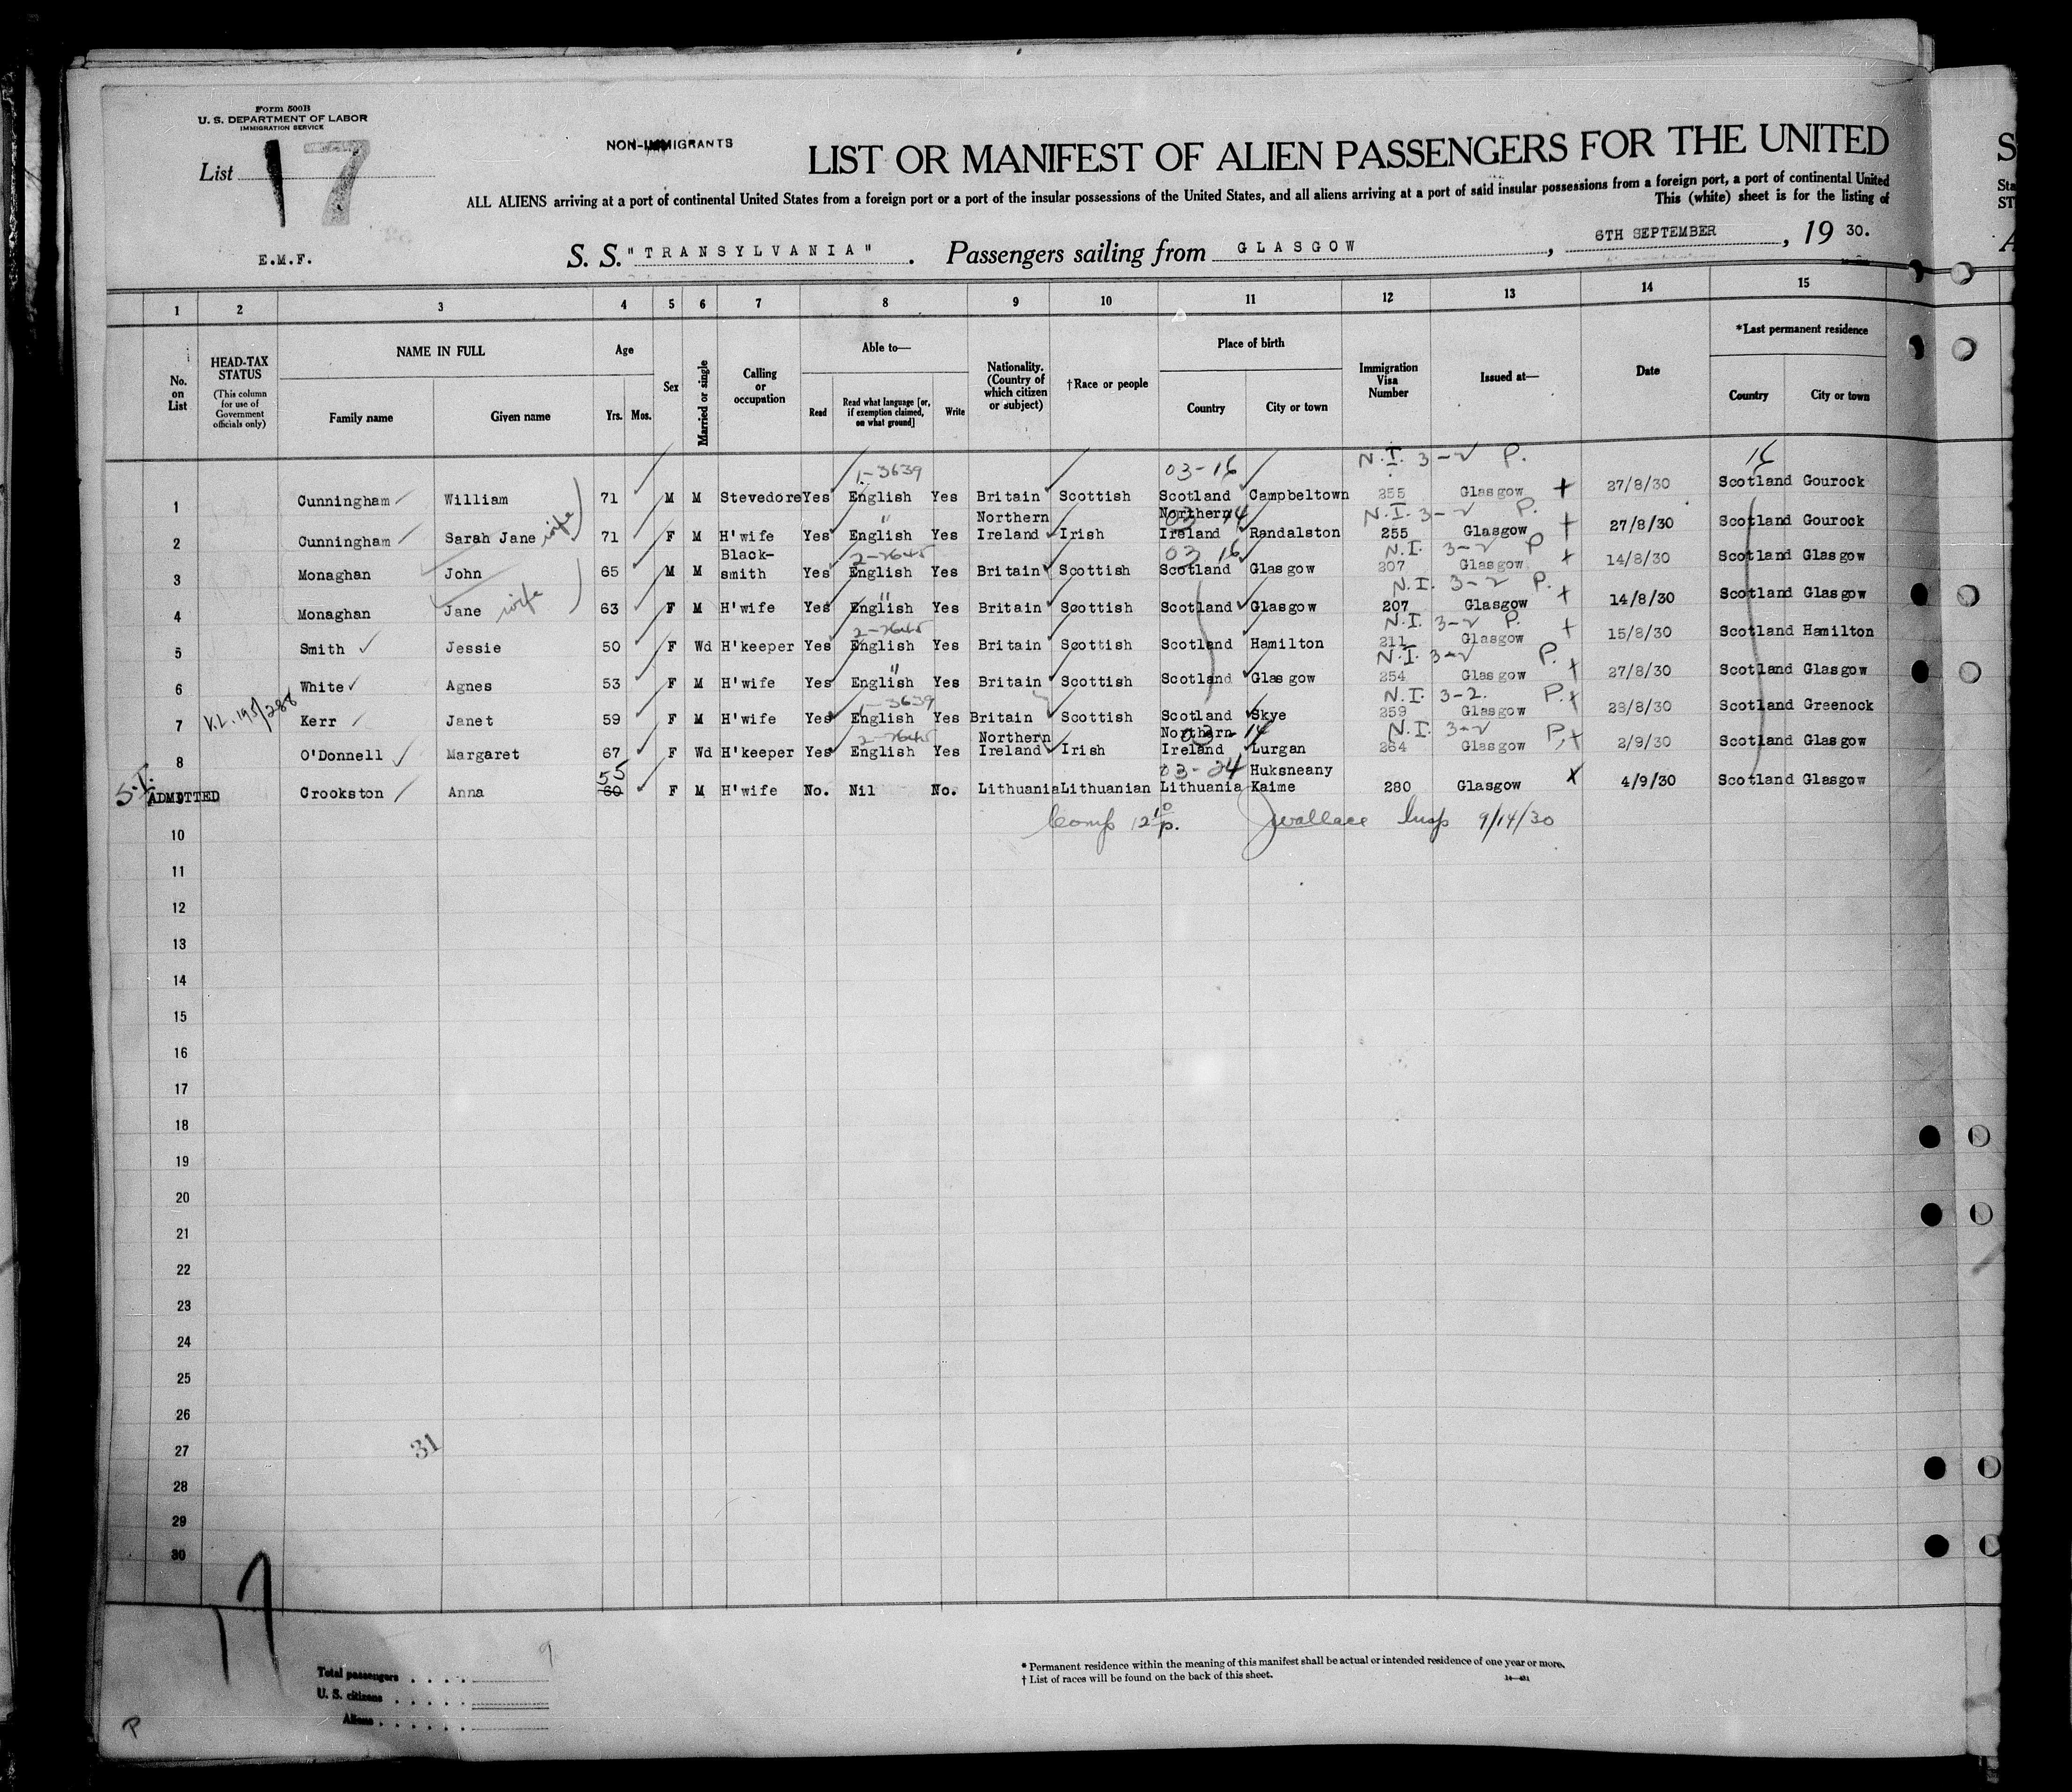 Form 500B
U. S. DEPARTMENT OF LABOR
IMMIGRATION SERVICE
List 17
NON-IMMIGRANTS
LIST OR MANIFEST OF ALIEN PASSENGERS FOR THE UNITED
ALL ALIENS arriving at a port of continental United States from a foreign port or a port of the insular possessions of the United States, and all aliens arriving at a port of said insular possessions from a foreign port, a port of continental United
This (white) sheet is for the listing of
E.M.F.
S. S. "TRANSYLVANIA". Passengers sailing from GLASGOW, 6TH SEPTEMBER, 19 30.
1 2 3 4 5 6 7 8 9 10 11 12 13 14 15
No. on List
HEAD-TAX STATUS (This column for use of Government officials only)
NAME IN FULL Family name Given name
Age Yrs. Mos.
Sex
Married or single
Calling or occupation
Able to— Read Read what language [or, if exemption claimed, on what ground] Write
Nationality. (Country of which citizen or subject)
†Race or people
Place of birth Country City or town
Immigration Visa Number
Issued at—
Date
*Last permanent residence Country City or town
1-3639 03-16 N.I. 3-2 P. 16
1 Cunningham William 71 M M Stevedore Yes English Yes Britain Scottish Scotland Campbeltown 255 Glasgow 27/8/30 Scotland Gourock
" 03 14 N.I. 3-2 P.
2 Cunningham Sarah Jane wife 71 F M H'wife Yes English Yes Northern Ireland Irish Northern Ireland Randalston 255 Glasgow 27/8/30 Scotland Gourock
2-2645 03 16 N.I. 3-2 P
3 Monaghan John 65 M M Black-smith Yes English Yes Britain Scottish Scotland Glasgow 207 Glasgow 14/8/30 Scotland Glasgow
" N.I. 3-2 P.
4 Monaghan Jane wife 63 F M H'wife Yes English Yes Britain Scottish Scotland Glasgow 207 Glasgow 14/8/30 Scotland Glasgow
2-2645 N.I. 3-2 P.
5 Smith Jessie 50 F Wd H'keeper Yes English Yes Britain Scottish Scotland Hamilton 211 Glasgow 15/8/30 Scotland Hamilton
" N.I. 3-2 P.
6 White Agnes 53 F M H'wife Yes English Yes Britain Scottish Scotland Glasgow 254 Glasgow 27/8/30 Scotland Glasgow
1-3639 N.I. 3-2. P.
7 Kerr Janet 59 F M H'wife Yes English Yes Britain Scottish Scotland Skye 259 Glasgow 28/8/30 Scotland Greenock
2-2645 03-14 N.I. 3-2 P.
8 O'Donnell Margaret 67 F Wd H'keeper Yes English Yes Northern Ireland Irish Northern Ireland Lurgan 264 Glasgow 2/9/30 Scotland Glasgow
S.I. 55 03-24
ADMITTED 9 Crookston Anna 60 F M H'wife No. Nil No. Lithuania Lithuanian Lithuania Huksneany Kaime 280 Glasgow 4/9/30 Scotland Glasgow
10 Wallace Insp 9/14/30
11
12
13
14
15
16
17
18
19
20
21
22
23
24
25
26
27
31
28
29
30
17
Total passengers 9
U. S. citizens
Aliens
* Permanent residence within the meaning of this manifest shall be actual or intended residence of one year or more.
† List of races will be found on the back of this sheet.
P